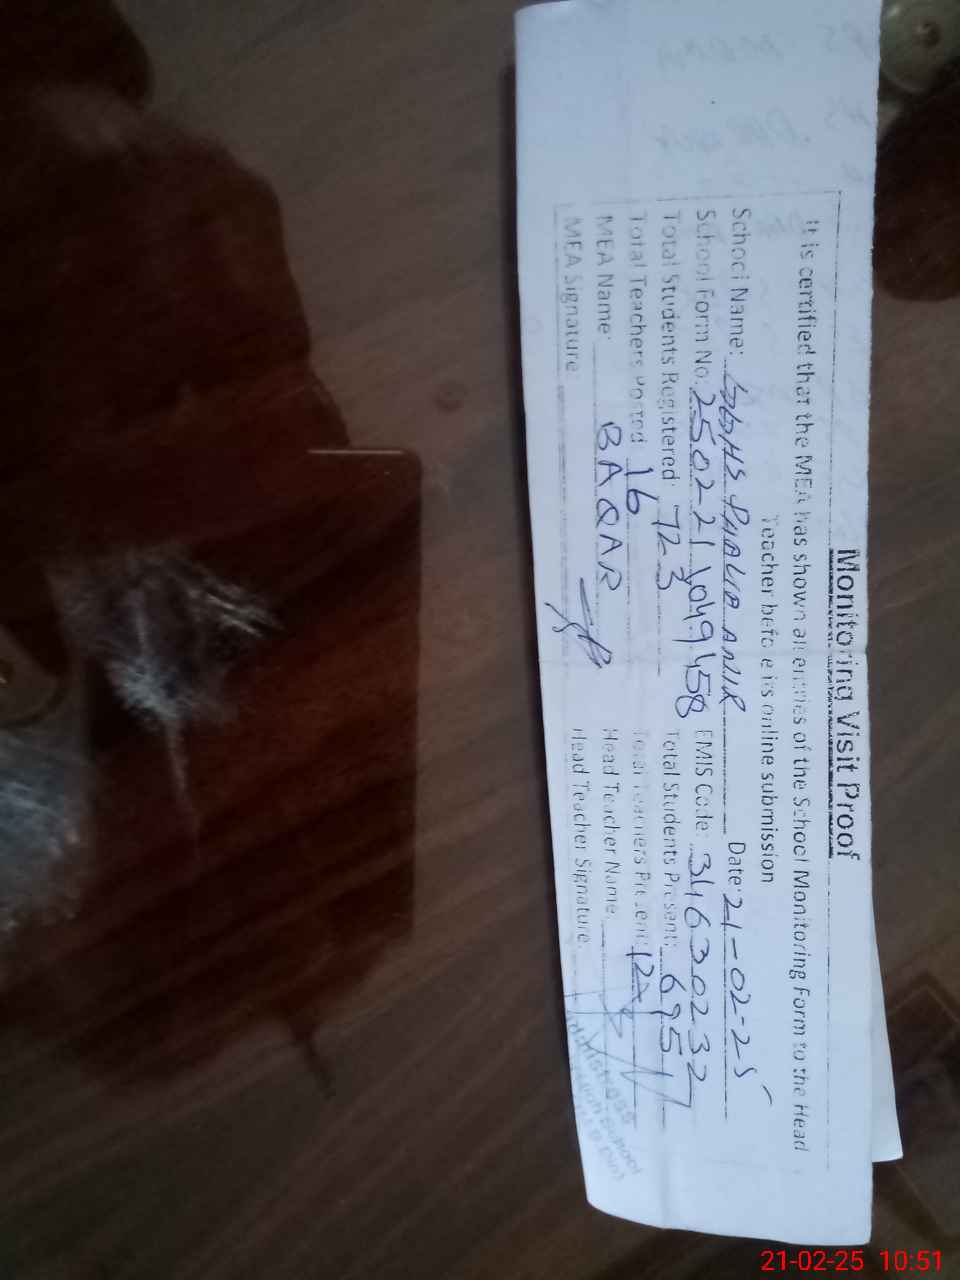 Monitoring Visit Proof
It is certified that the MEA has shown all entries of the School Monitoring Form to the Head
Teacher before its online submission
School Name: GGHS PHALIA AMIR Date: 21-02-25
School Form No: 250221049458 EMIS Code: 31630232
Total Students Registered: 723 Total Students Present: 695
Total Teachers Posted 16 Total Teachers Present: 12
MEA Name: BAQAR Head Teacher Name:
MEA Signature: Head Teacher Signature:
High School
21-02-25 10:51